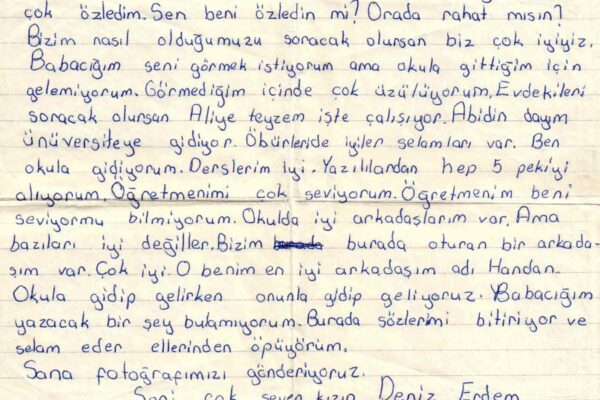 çok özledim. Sen beni özledin mi? Orada rahat mısın?
Bizim nasıl olduğumuzu soracak olursan biz çok iyiyiz.
Babacığım seni görmek istiyorum ama okula gittiğim için
gelemiyorum. Görmediğim içinde çok üzülüyorum. Evdekileri
soracak olursan Aliye teyzem işte çalışıyor. Abidin dayım
ünüversiteye gidiyor. Öbürleride iyiler selamları var. Ben
okula gidiyorum. Derslerim iyi. Yazılılardan hep 5 pekiyi
alıyorum. Öğretmenimi çok seviyorum. Öğretmenim beni
seviyormu bilmiyorum. Okulda iyi arkadaşlarım var. Ama
bazıları iyi değiller. Bizim burada oturan bir arkada-
şım var. Çok iyi. O benim en iyi arkadaşım adı Handan..
Okula gidip gelirken onunla gidip geliyoruz. Babacığım
yazacak bir şey bulamıyorum. Burada sözlerimi bitiriyor ve
selam eder ellerinden öpüyörüm.
Sana fotoğrafımızı gönderiyoruz.
Seni çok seven kızın Deniz Erdem